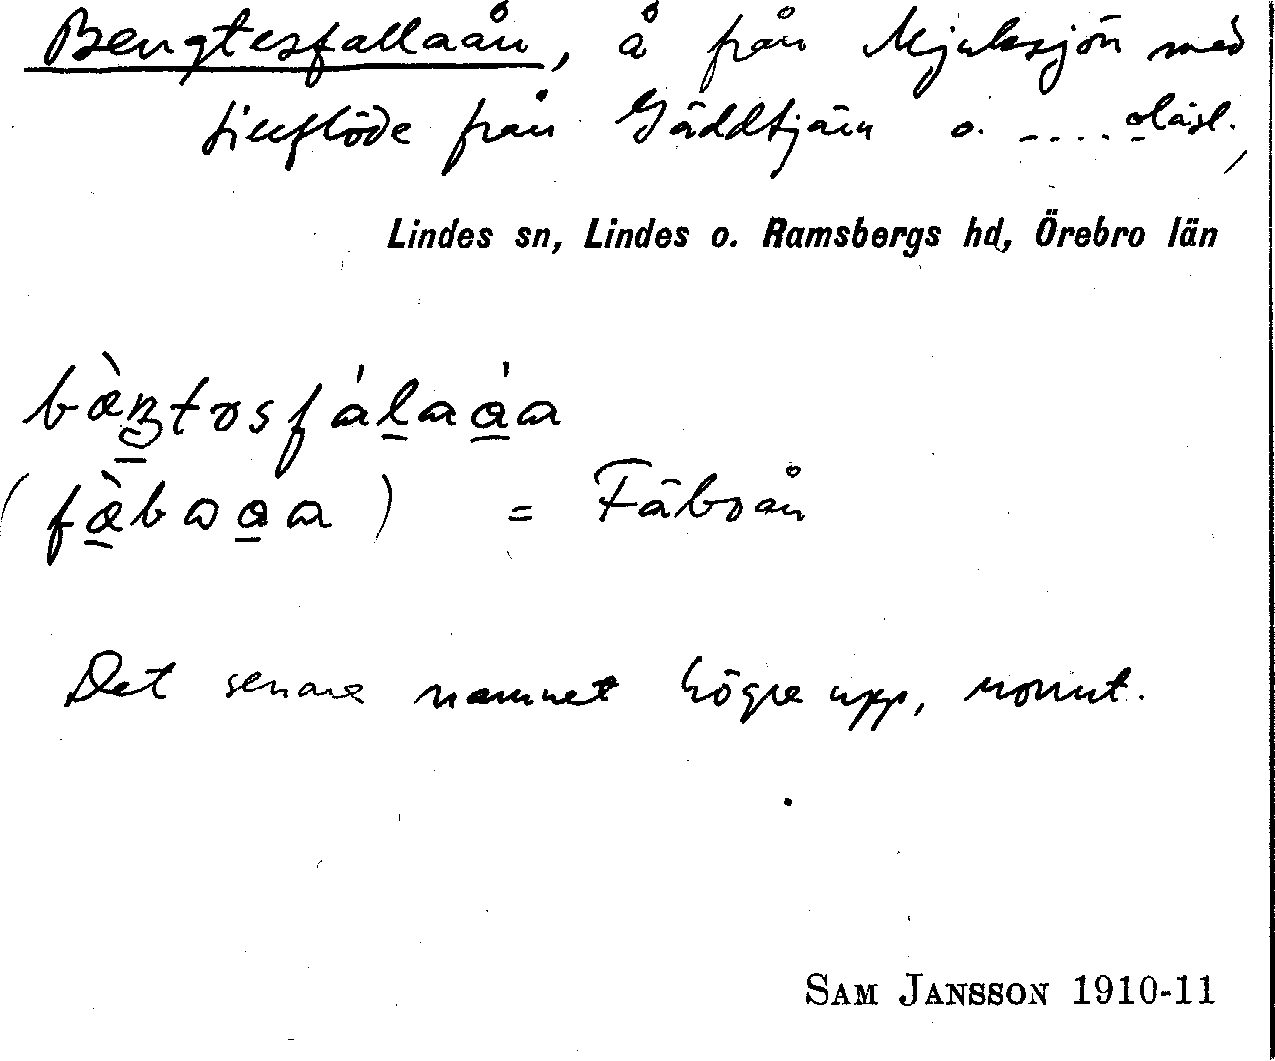 Bengtesfallaån, å från Mjuksjön med
tillflöde från Gäddtjärn o. ---- oläsl.,
Lindes sn, Lindes o. Ramsbergs hd, Örebro län
= Fäboån
Det senare namnet högre upp, norrut.
SAM JANSSON 1910-11